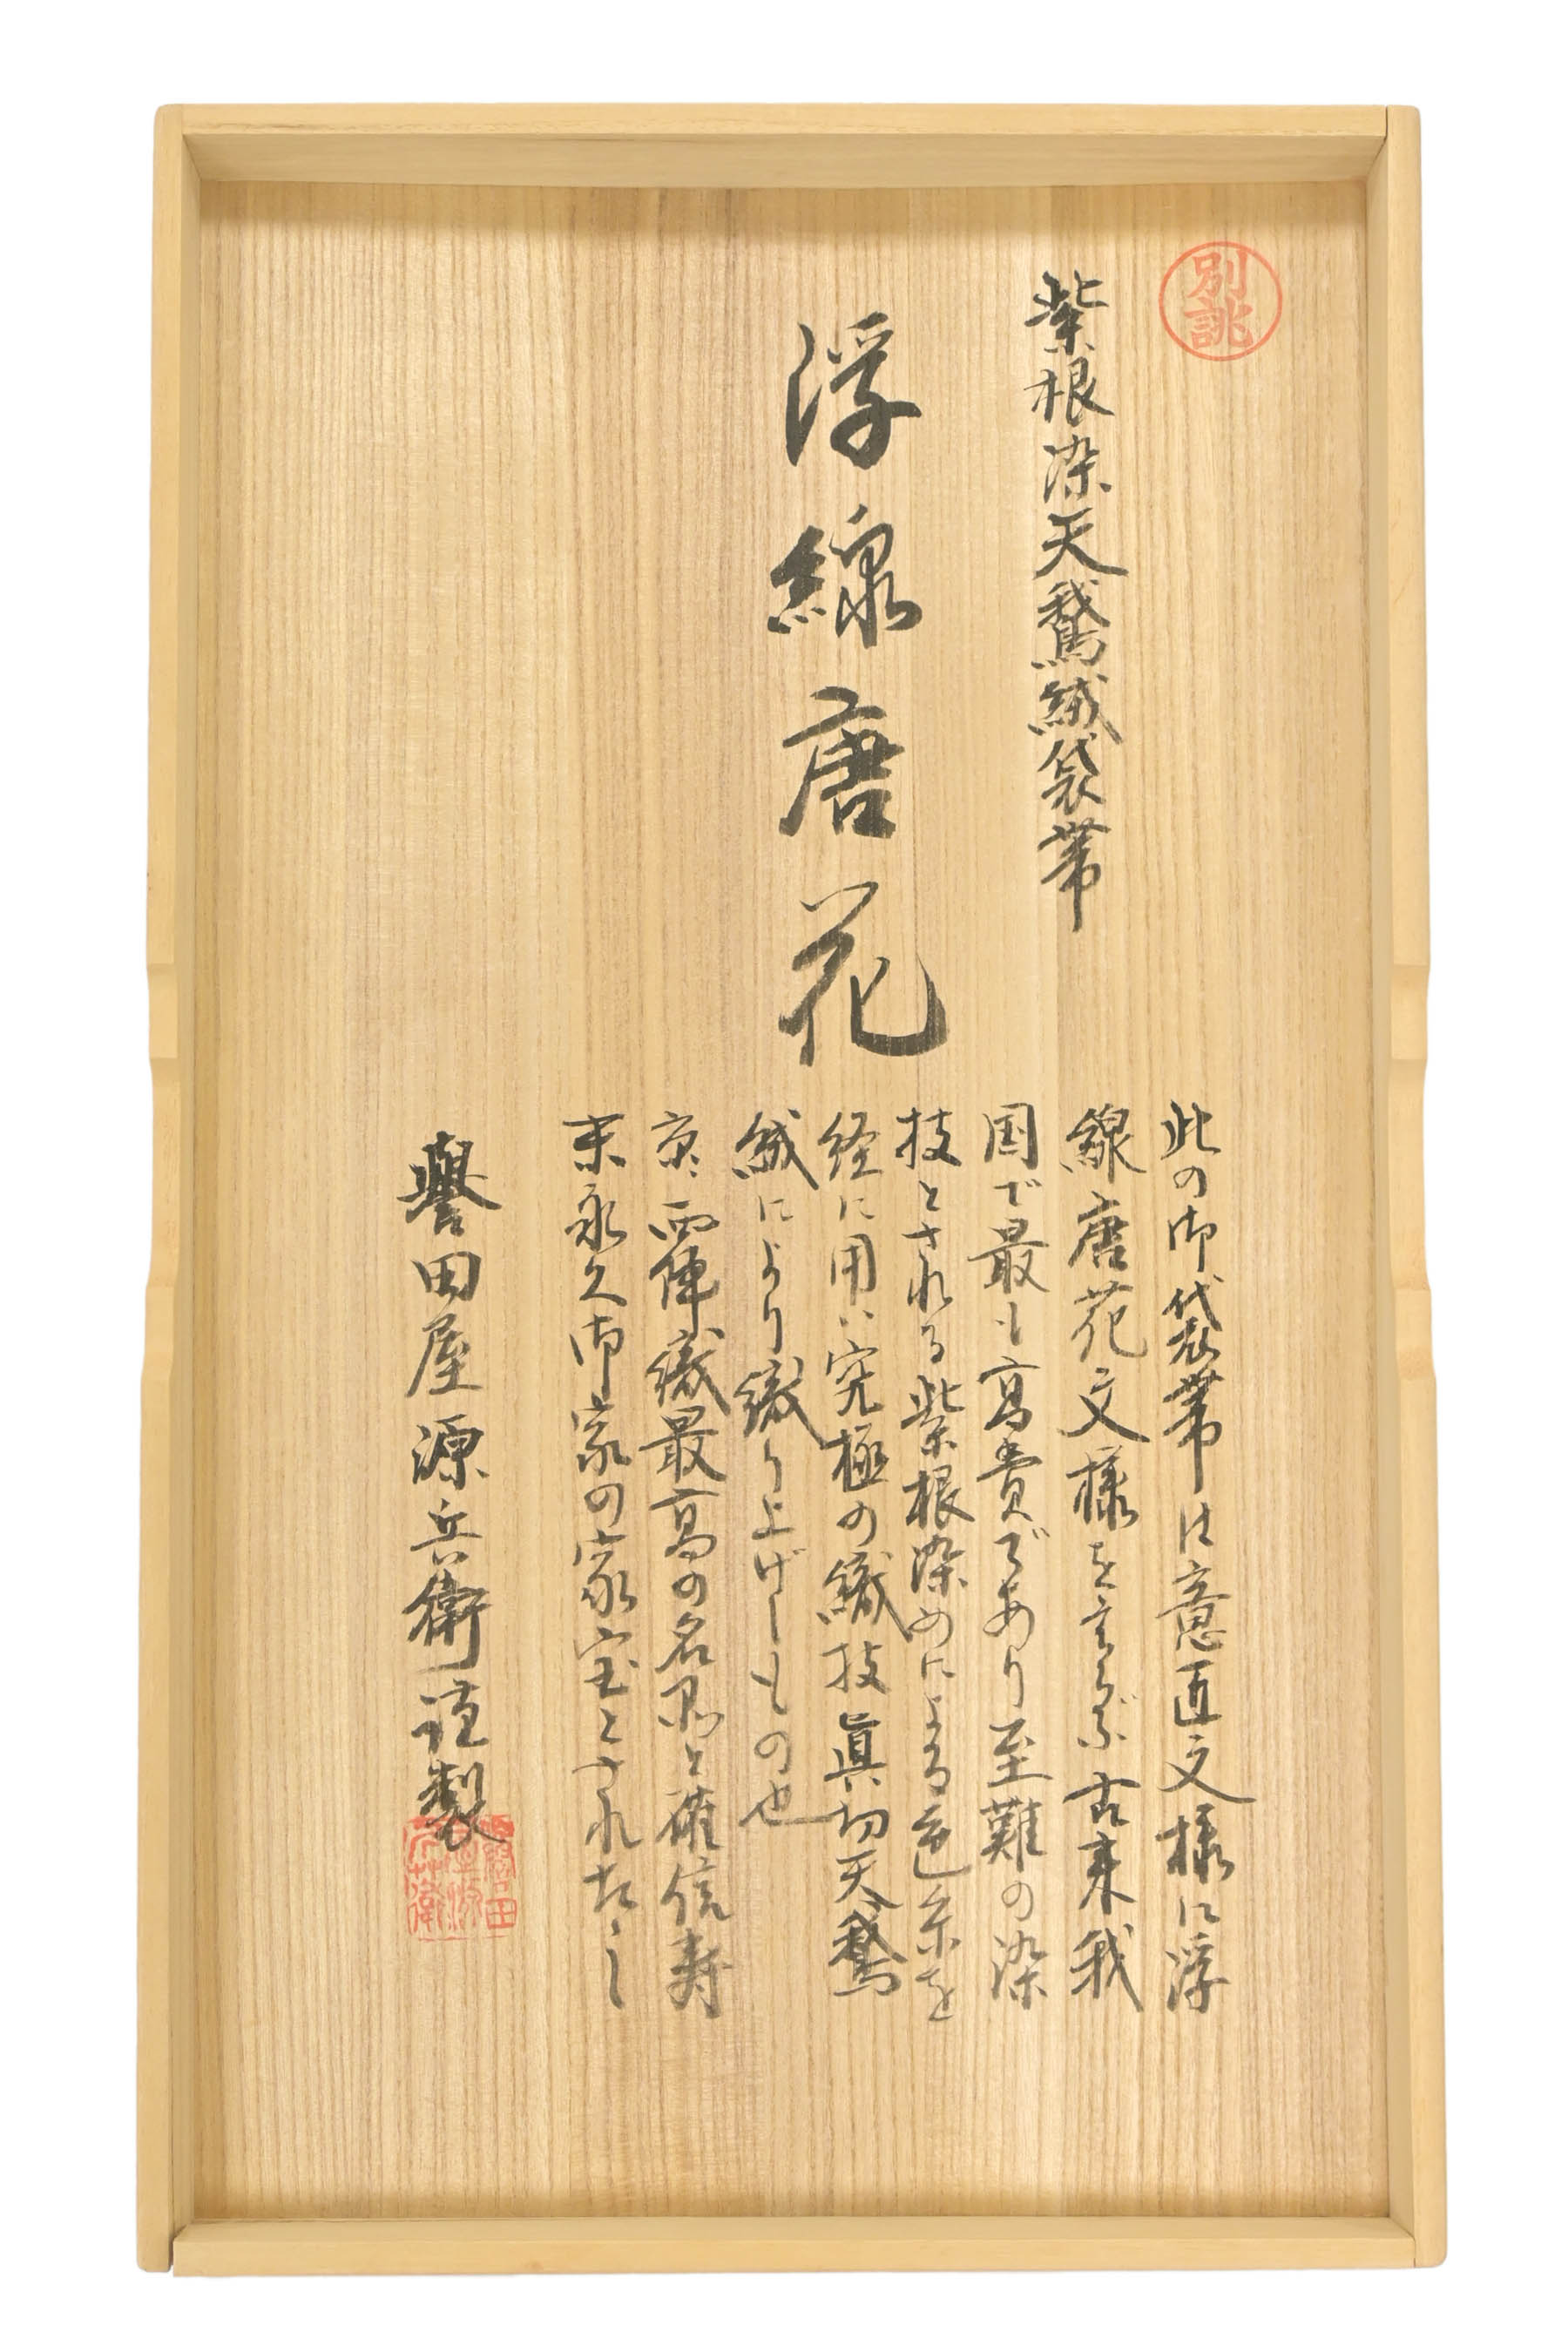 別誂
紫根染天鵞絨袋帯
浮線唐花
此の御袋帯は意匠文様に浮
線唐花文様をえらぶ古来我
国で最も高貴であり至難の染
技とされる紫根染めによる色糸を
経に用い究極の織技眞切天鵞
絨により織り上げしもの也
京西陣織最高の名品と確信寿
末永久御家の家宝とされたし
譽田屋源兵衛謹製